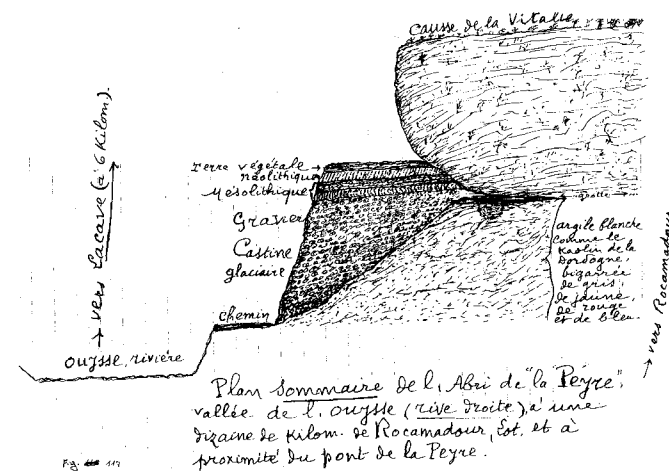 Causse de la Vitalie
Terre végétale
néolithique
Mésolithique
Gravier
Castine
glaciaire
chemin
Ouysse, rivière
→ vers Lacave (à 6 Kilom).
grotte
argile blanche
comme le
Kaolin de la
Dordogne,
bigarrée
de gris,
de jaune,
de rouge
et de bleu.
→ vers Rocamadour
Plan Sommaire de l'Abri de "la Peyre",
vallée de l'Ouysse (rive droite), à une
dizaine de Kilom. de Rocamadour, Lot. et à
proximité du pont de la Peyre.
Fig. 117